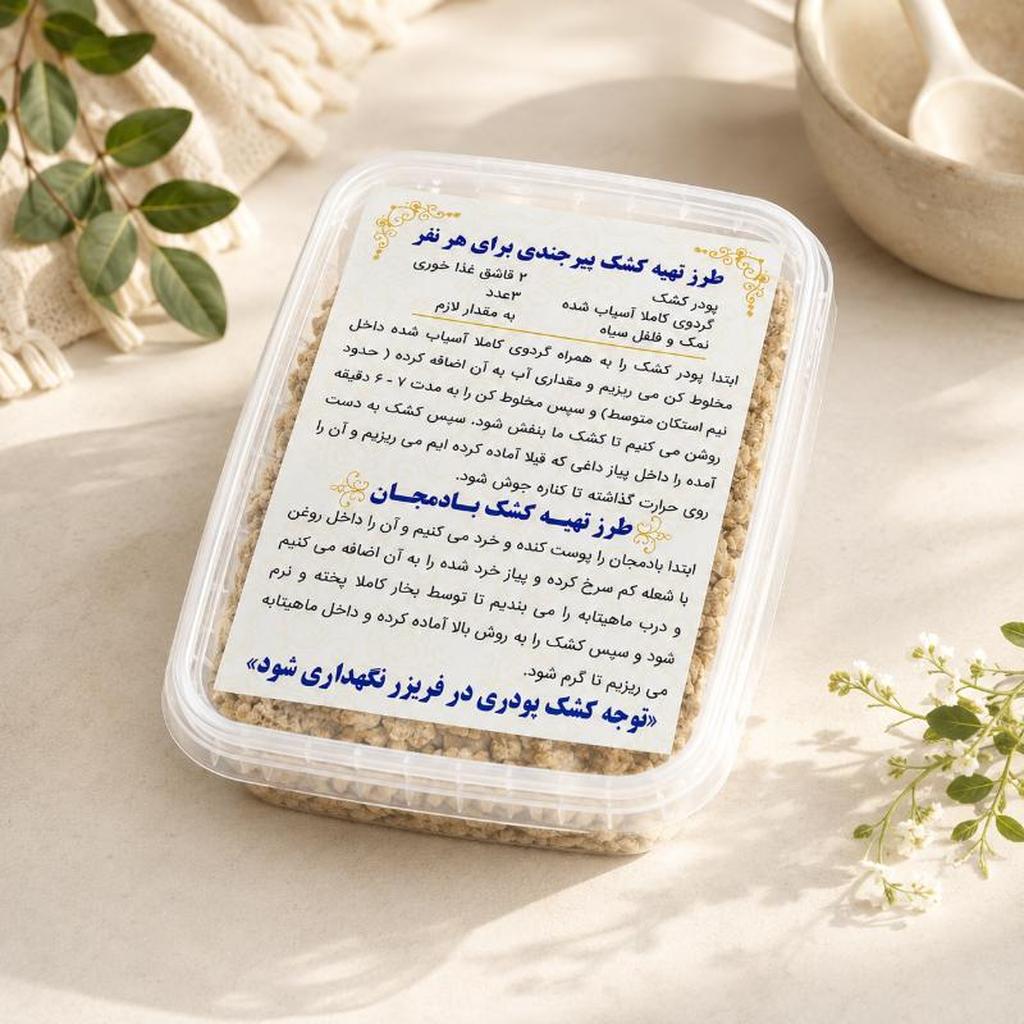 طرز تهیه کشک بیرجندی برای هر نفر
پودر کشک ۲ قاشق غذا خوری
گردوی کاملا آسیاب شده ۳عدد
نمک و فلفل سیاه به مقدار لازم
ابتدا پودر کشک را به همراه گردوی کاملا آسیاب شده داخل
مخلوط کن می ریزیم و مقداری آب به آن اضافه کرده ( حدود
نیم استکان متوسط) و سپس مخلوط کن را به مدت ۷ - ۶ دقیقه
روشن می کنیم تا کشک ما بنفش شود. سپس کشک به دست
آمده را داخل پیاز داغی که قبلا آماده کرده ایم می ریزیم و آن را
روی حرارت گذاشته تا کناره جوش شود.
طرز تهیـه کشک بـادمجـان
ابتدا بادمجان را پوست کنده و خرد می کنیم و آن را داخل روغن
با شعله کم سرخ کرده و پیاز خرد شده را به آن اضافه می کنیم
و درب ماهیتابه را می بندیم تا توسط بخار کاملا پخته و نرم
شود و سپس کشک را به روش بالا آماده کرده و داخل ماهیتابه
می ریزیم تا گرم شود.
«توجه کشک پودری در فریزر نگهداری شود»